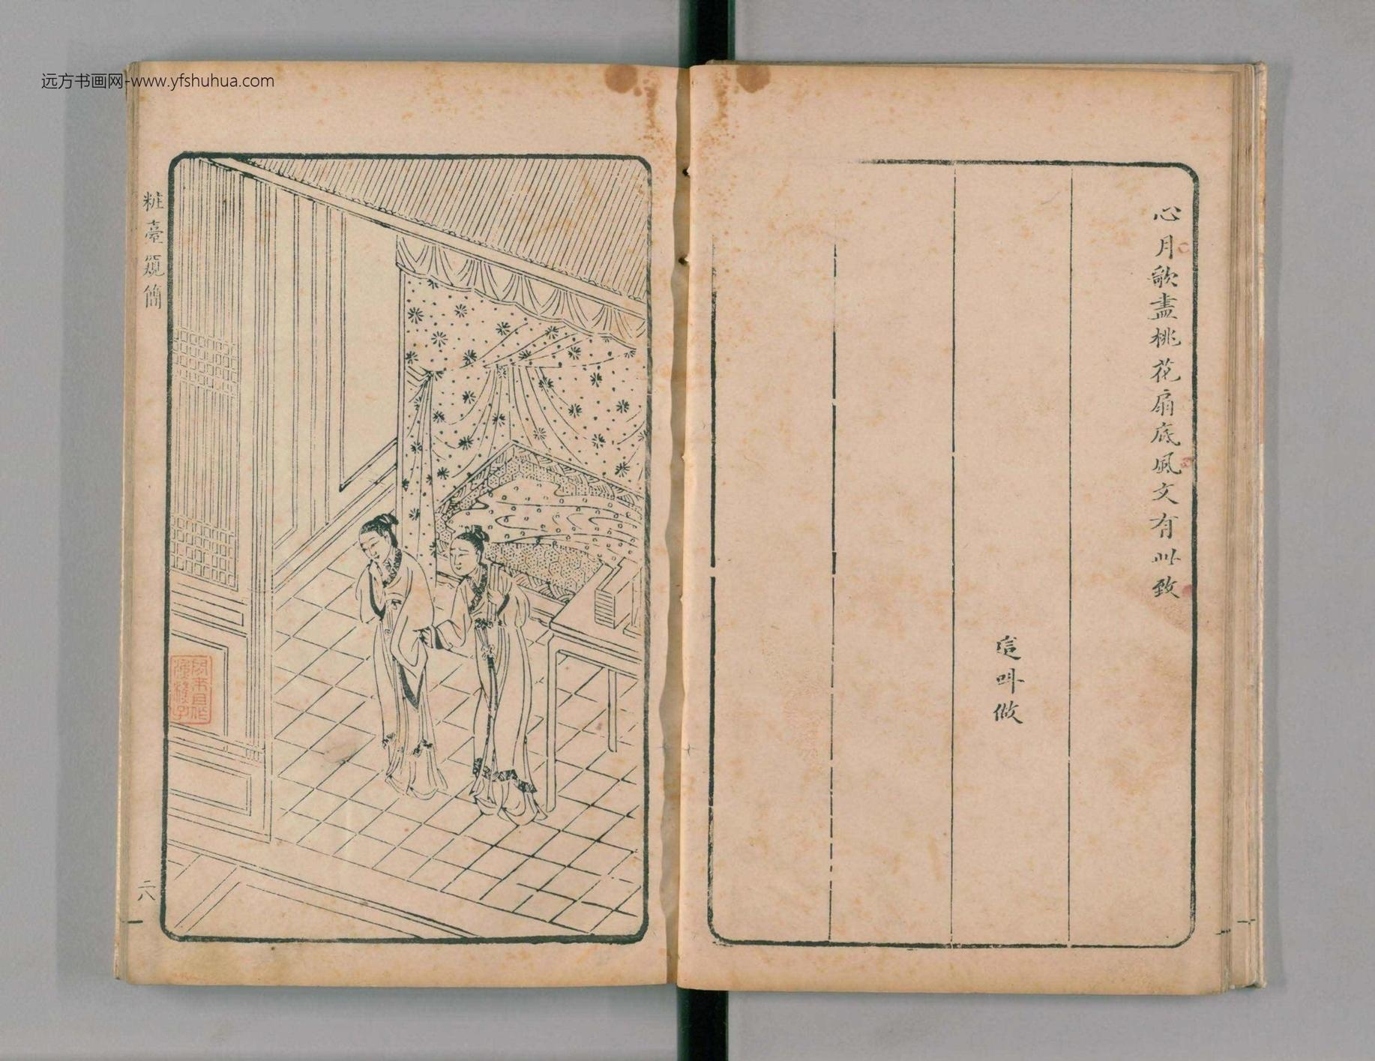 远方书画网-www.yfshuhua.com
心月歌盡桃花扇底風文有此致
這叫做
粧臺窺簡
六